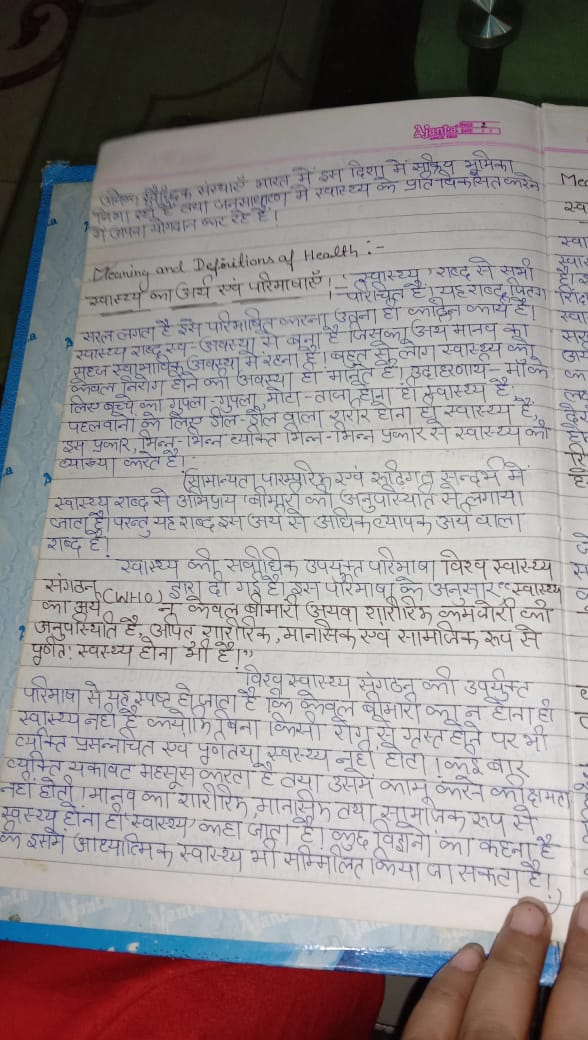 Ajanta
2
शैक्षिक संस्थाएँ भारत में इस दिशा में सक्रिय भूमिका
निभा रही है तथा जनसाधारण में स्वास्थ्य के प्रति विकसित करने
में अपना योगदान कर रहे है।
Meaning and Definitions of Health :-
स्वास्थ्य का अर्थ एवं परिभाषाएँ :- 'स्वास्थ्य' शब्द से सभी
परिचित है। यह शब्द जितना
सरल लगता है इसे परिभाषित करना उतना ही कठिन कार्य है।
स्वास्थ्य शब्द स्व-अवस्था से बना है जिसका अर्थ मानव का
सहज स्वाभाविक अवस्था में रहना है। बहुत से लोग स्वास्थ्य को
केवल निरोग होने की अवस्था ही मानते है। उदाहरणार्थ - माँ के
लिए बच्चे का गुपला-गुपला, मोटा-ताजा होना ही स्वास्थ्य है,
पहलवानों के लिए डील-डौल वाला शरीर होना ही स्वास्थ्य है,
इस प्रकार, भिन्न-भिन्न व्यक्ति भिन्न-भिन्न प्रकार से स्वास्थ्य की
व्याख्या करते है।
सामान्यता पारम्परिक एवं रूढ़िगत सन्दर्भ में
स्वास्थ्य शब्द से अभिप्राय बीमारी की अनुपस्थिति से लगाया
जाता है परन्तु यह शब्द इस अर्थ से अधिक व्यापक अर्थ वाला
शब्द है।
स्वास्थ्य की सर्वाधिक उपयुक्त परिभाषा विश्व स्वास्थ्य
संगठन (WHO) द्वारा दी गई है। इस परिभाषा के अनुसार "स्वास्थ्य
का अर्थ न केवल बीमारी अथवा शारीरिक कमजोरी की
अनुपस्थिति है, अपितु शारीरिक, मानसिक एवं सामाजिक रूप से
पूर्णत: स्वस्थ्य होना भी है।"
विश्व स्वास्थ्य संगठन की उपर्युक्त
परिभाषा से यह स्पष्ट हो जाता है कि केवल बीमारी का न होना ही
स्वास्थ्य नहीं है क्योंकि बिना किसी रोग से ग्रस्त होने पर भी
व्यक्ति प्रसन्नचित एवं पूर्णतया स्वस्थ्य नहीं होता। कई बार
व्यक्ति थकावट महसूस करता है तथा उसमें काम करने की क्षमता
नहीं होती। मानव का शारीरिक, मानसिक तथा सामाजिक रूप से
स्वस्थ्य होना ही 'स्वास्थ्य' कहा जाता है। कुछ विद्वानों का कहना है
कि इसमें आध्यात्मिक स्वास्थ्य भी सम्मिलित किया जा सकता है।